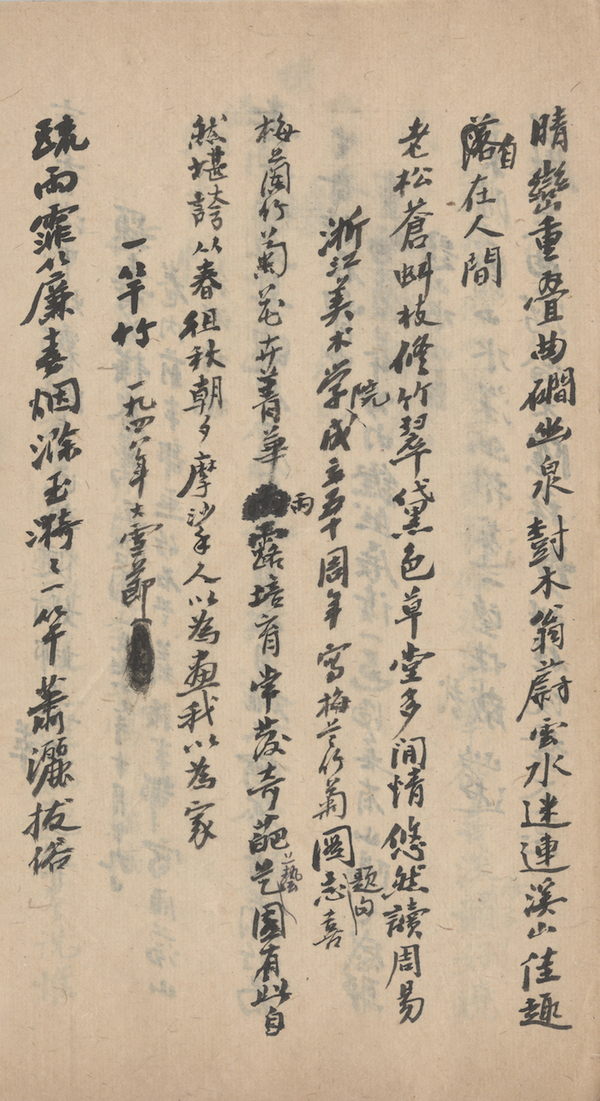 晴巒重疊曲磵幽泉樹木蓊蔚雲水迷連溪山佳趣
落自在人間
老松蒼虯枝修竹翠黛色草堂多閒情悠然讀周易
浙江美术学院成立五十周年寫梅兰竹菊圖志喜題句
梅蘭竹菊花卉菁華雨露培育常發奇葩艺藝園有此自
然堪誇从春徂秋朝夕摩挲人以為畫我以為家
一竿竹 一九四八年大雪節
疏雨霏从廉春烟滌玉漪〻一竿蕭灑拔俗